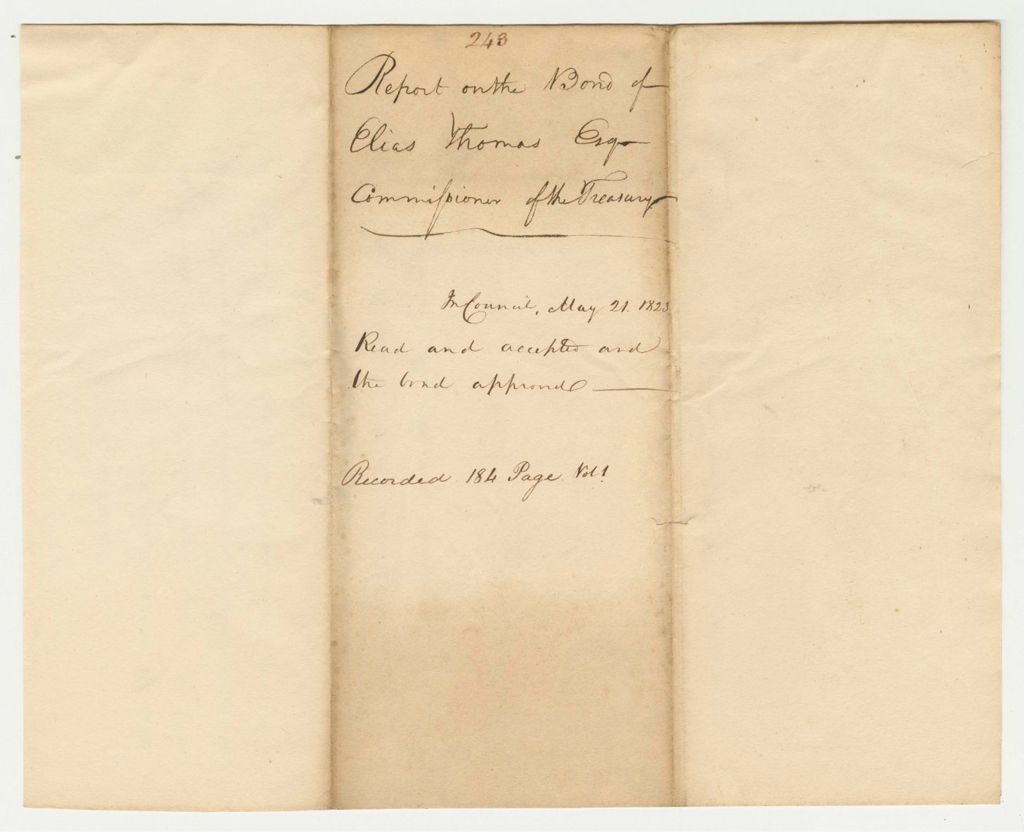 243
Report on the Bond of
Elias Thomas Esqr
Commissioner of the Treasury
In Council, May 21. 1823
Read and accepted and
the bond approved
Recorded 184 Page Vol 1